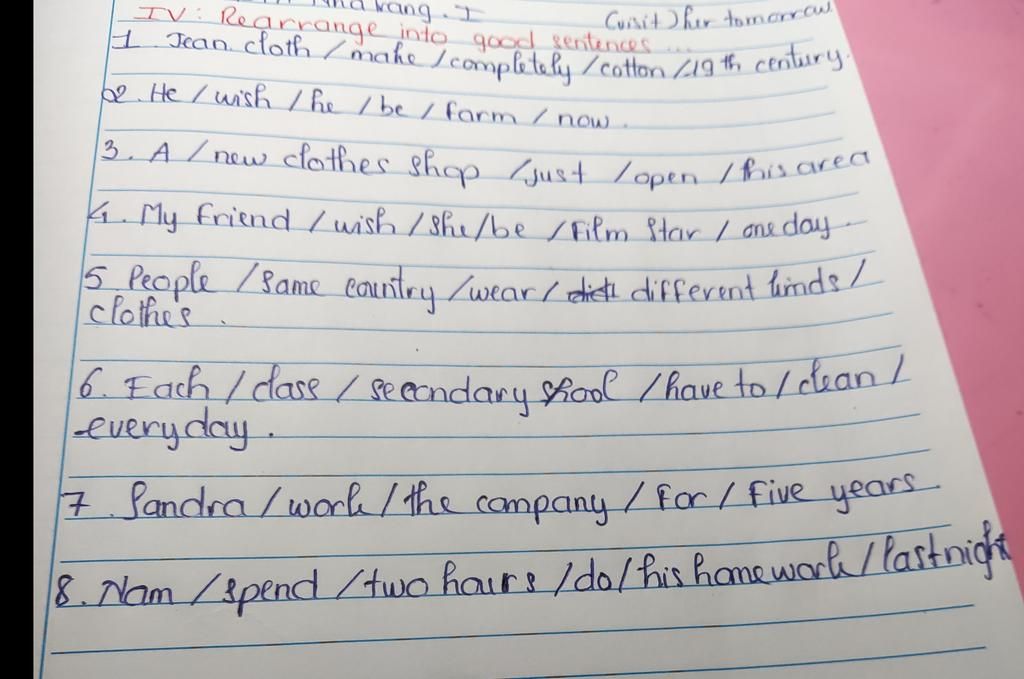 (visit) her tomorrow
IV: Rearrange into good sentences ...
1. Jean cloth / make / completely / cotton / 19 th century.
2. He / wish / he / be / farm / now.
3. A / new clothes shop / just / open / this area
4. My friend / wish / she / be / film star / one day.
5 People / same country / wear / different kinds /
clothes.
6. Each / class / secondary shool / have to / clean /
everyday.
7. Sandra / work / the company / for / five years.
8. Nam / spend / two hours / do / his homework / last night